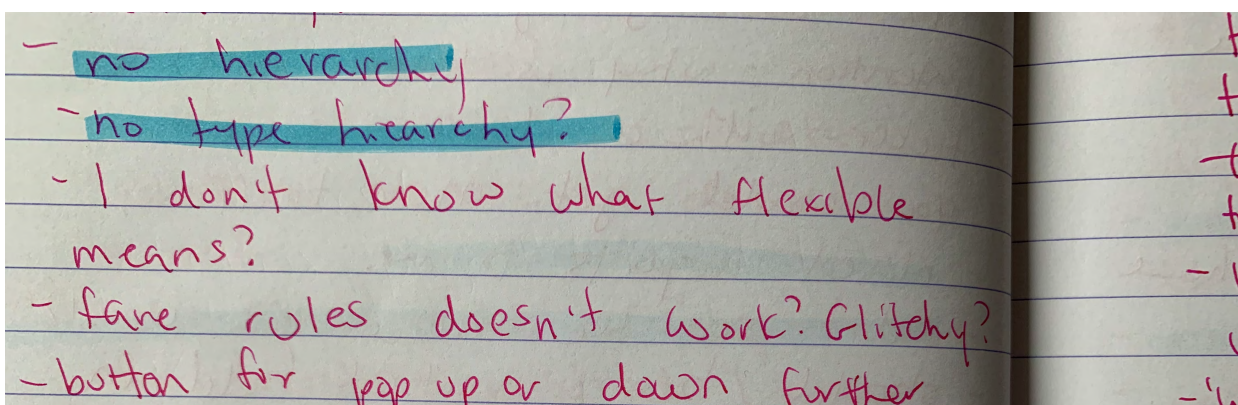 - no hierarchy
- no type hiearchy?
- I don't know what flexible
means?
- fare rules doesn't work? Glitchy?
- button for pop up or down further